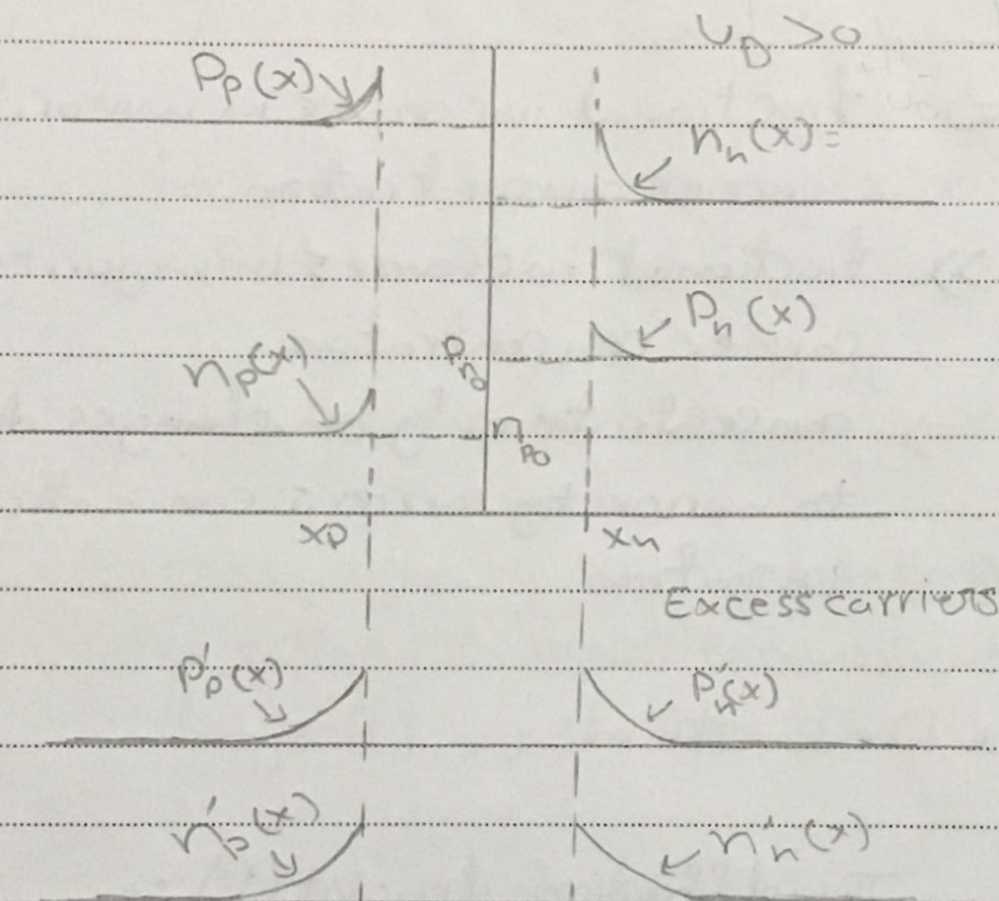 υD > 0
Pp(x)
nn(x)=
Pn(x)
np(x)
Pn0
np0
xp
xn
Excess carriers
P'p(x)
P'n(x)
n'p(x)
n'n(x)